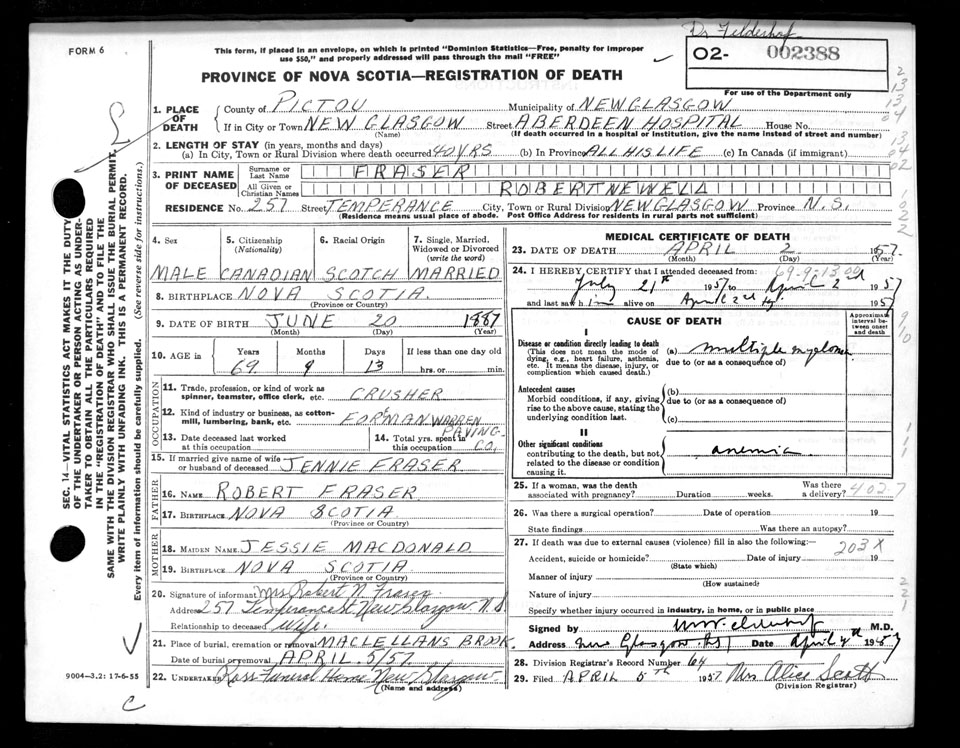 Dr Felderhof
FORM 6
This form, if placed in an envelope, on which is printed "Dominion Statistics—Free, penalty for improper
use $50," and properly addressed will pass through the mail "FREE"
02- 002388
For use of the Department only
PROVINCE OF NOVA SCOTIA—REGISTRATION OF DEATH
1. PLACE OF DEATH
County of PICTOU Municipality of NEW GLASGOW
If in City or Town NEW GLASGOW Street ABERDEEN HOSPITAL House No.
(Name) (If death occurred in a hospital or institution, give the name instead of street and number)
2. LENGTH OF STAY (in years, months and days)
(a) In City, Town or Rural Division where death occurred 40 YRS (b) In Province ALL HIS LIFE (c) In Canada (if immigrant)
3. PRINT NAME OF DECEASED
Surname or Last Name FRASER
All Given or Christian Names ROBERT NEWELL
RESIDENCE No. 257 Street TEMPERANCE City, Town or Rural Division NEW GLASGOW Province N.S.
(Residence means usual place of abode. Post Office Address for residents in rural parts not sufficient)
4. Sex 5. Citizenship (Nationality) 6. Racial Origin 7. Single, Married, Widowed or Divorced (write the word)
MALE CANADIAN SCOTCH MARRIED
8. BIRTHPLACE NOVA SCOTIA.
(Province or Country)
9. DATE OF BIRTH JUNE 20 1887
(Month) (Day) (Year)
10. AGE in Years Months Days If less than one day old
69 9 13 hrs. or min.
OCCUPATION
11. Trade, profession, or kind of work as spinner, teamster, office clerk, etc. CRUSHER
12. Kind of industry or business, as cotton-mill, lumbering, bank, etc. FOREMAN WARREN PAVING CO,
13. Date deceased last worked at this occupation 14. Total yrs. spent in this occupation
15. If married give name of wife or husband of deceased JENNIE FRASER
FATHER
16. NAME ROBERT FRASER
17. BIRTHPLACE NOVA SCOTIA
(Province or Country)
MOTHER
18. MAIDEN NAME JESSIE MACDONALD
19. BIRTHPLACE NOVA SCOTIA
(Province or Country)
20. Signature of informant Mrs Robert N. Fraser
Address 257 Temperance St New Glasgow N.S
Relationship to deceased wife.
21. Place of burial, cremation or removal MACLELLANS BROOK
Date of burial or removal APRIL. 5/57.
22. UNDERTAKER Ross Funeral Home New Glasgow
(Name and address)
MEDICAL CERTIFICATE OF DEATH
23. DATE OF DEATH APRIL 2 1957.
(Month) (Day) (Year)
69-9-13 00
24. I HEREBY CERTIFY that I attended deceased from
July 21st 1957 to April 2nd 1957
and last saw him alive on April 2nd 1957
CAUSE OF DEATH
Approximate interval between onset and death
I
Disease or condition directly leading to death
(This does not mean the mode of dying, e.g., heart failure, asthenia, etc. It means the disease, injury, or complication which caused death.)
(a) multiple myeloma
due to (or as a consequence of)
Antecedent causes
Morbid conditions, if any, giving rise to the above cause, stating the underlying condition last.
(b)
due to (or as a consequence of)
(c)
II
Other significant conditions
contributing to the death, but not related to the disease or condition causing it.
anemia
25. If a woman, was the death associated with pregnancy? Duration weeks. Was there a delivery?
26. Was there a surgical operation? Date of operation 19
State findings Was there an autopsy?
27. If death was due to external causes (violence) fill in also the following:—
203 X
Accident, suicide or homicide? Date of injury 19
(State which)
Manner of injury
(How sustained)
Nature of injury
Specify whether injury occurred in industry, in home, or in public place
Signed by M.D.
Address New Glasgow NS Date April 4th 1957
28. Division Registrar's Record Number 64
29. Filed APRIL 5th 1957 Mrs Alice Scott
(Division Registrar)
SEC. 14—VITAL STATISTICS ACT MAKES IT THE DUTY
OF THE UNDERTAKER OR PERSON ACTING AS UNDER-
TAKER TO OBTAIN ALL THE PARTICULARS REQUIRED
IN THE "REGISTRATION OF DEATH" AND TO FILE THE
SAME WITH THE DIVISION REGISTRAR WHO SHALL ISSUE THE BURIAL PERMIT.
WRITE PLAINLY WITH UNFADING INK. THIS IS A PERMANENT RECORD.
Every item of information should be carefully supplied. (See reverse side for instructions.)
9004-3.2: 17-6-55
C